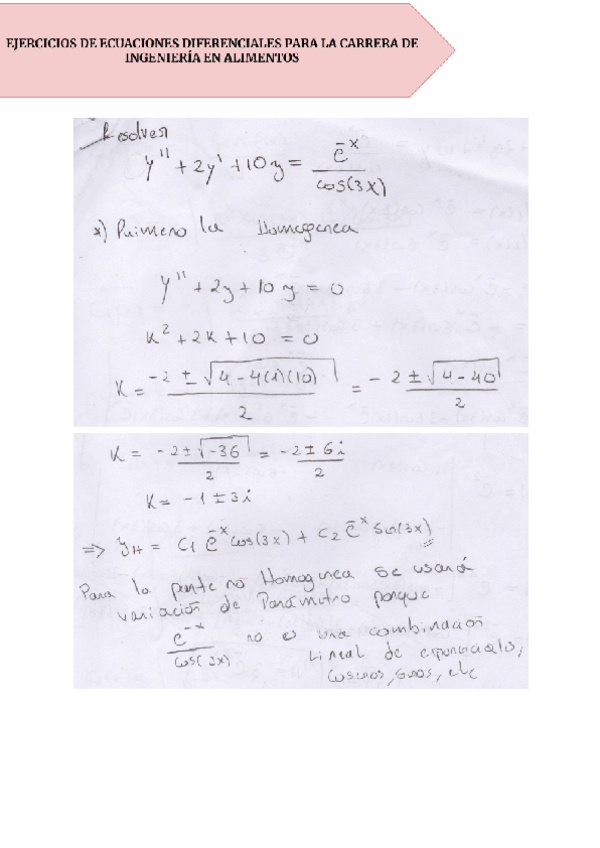 EJERCICIOS DE ECUACIONES DIFERENCIALES PARA LA CARRERA DE
INGENIERÍA EN ALIMENTOS
Resolver
y'' + 2y' + 10y = e^-x / cos(3x)
*) Primero la Homogenea
y'' + 2y + 10y = 0
k² + 2k + 10 = 0
k = (-2 ± √(4 - 4(1)(10))) / 2 = (-2 ± √(4 - 40)) / 2
k = (-2 ± √(-36)) / 2 = (-2 ± 6i) / 2
k = -1 ± 3i
=> y_H = C1 e^-x cos(3x) + C2 e^-x sin(3x)
Para la parte no Homogenea se usará
variación de Parámetro porque
e^-x / cos(3x) no es una combinación
lineal de exponenciales,
cosenos, senos, etc